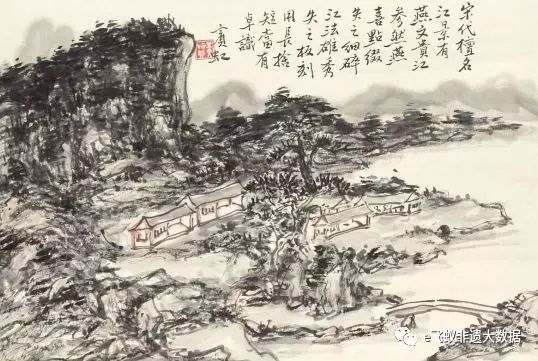 宋代擅名
江景有
燕文貴江
參然燕
喜點綴
失之細碎
江法雄秀
失之板刻
用長捨
短當有
卓識
賓虹
e飞蚁非遗大数据